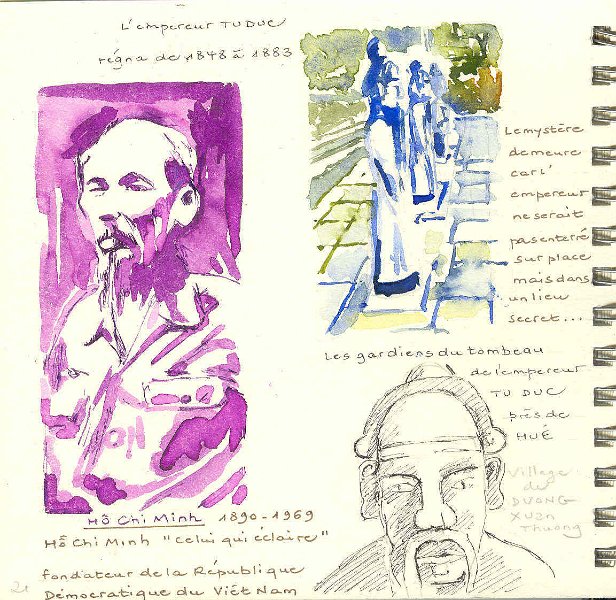 L'empereur TU DUC
régna de 1848 à 1883
Le mystère
demeure
car l'
empereur
ne serait
pas enterré
sur place
mais dans
un lieu
secret...
Les gardiens du tombeau
de l'empereur
TU DUC
près de
HUÉ
Village
de
DUONG
XUAN
Thuong
Hô Chi Minh 1890-1969
Hô Chi Minh "celui qui éclaire"
fondateur de la République
Démocratique du Viêt Nam